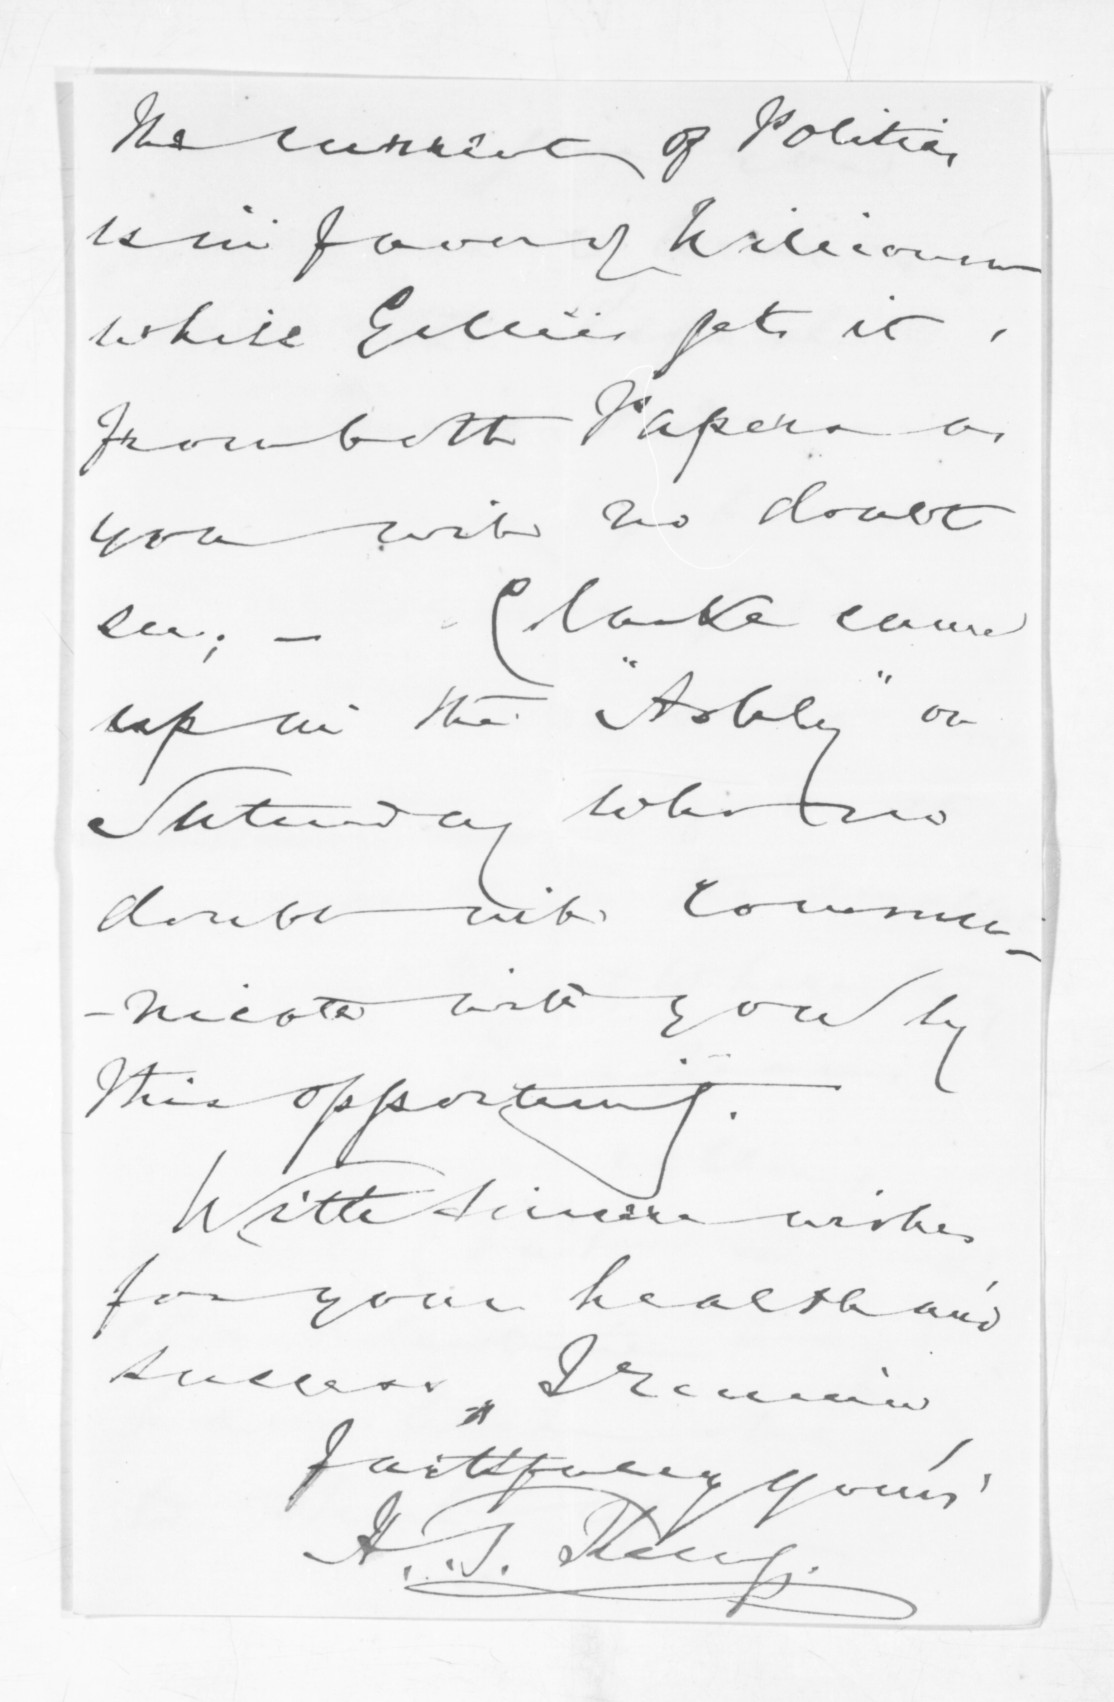 The current of Politics
is in favor of Williamson
while Gillies gets it,
from both Papers as
you will no doubt
see; - Clarke came
up in the "Ashly" on
Saturday who no
doubt will commu-
-nicate with you by
this opportunity.
With sincere wishes
for your health and
success, I remain
faithfully yours
H. T.